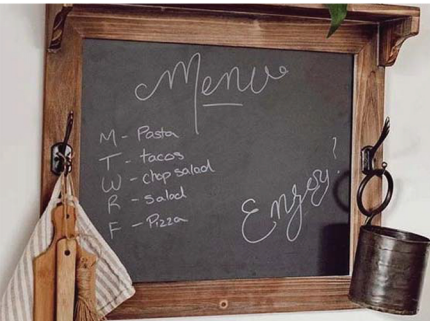 Menu
M - Pasta
T - tacos
W - chop salad
R - salad
F - Pizza
Enjoy!